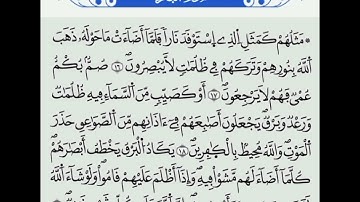 مَثَلُهُمْ كَمَثَلِ الَّذِي اِسْتَوْقَدَ نَاراً فَلَمَّا أَضَاءَتْ مَا حَوْلَهُ ذَهَبَ
اَللَّهُ بِنُورِهِمْ وَتَرَكَهُمْ فِي ظُلُمَٰتٍ لَّا يُبْصِرُونَ ١٦ صُمُّ بُكْمٌ
عُمْيٌ فَهُمْ لَا يَرْجِعُونَ ١٧ أَوْ كَصَيِّبٍ مِّنَ اَلسَّمَاءِ فِيهِ ظُلُمَٰتٌ
وَرَعْدٌ وَبَرْقٌ يَجْعَلُونَ أَصَٰبِعَهُمْ فِي ءَاذَانِهِم مِّنَ اَلصَّوَٰعِقِ حَذَرَ
اَلْمَوْتِ وَاللَّهُ مُحِيطٌ بِالْكَٰفِرِينَ ١٨ يَكَادُ اُلْبَرْقُ يَخْطَفُ أَبْصَٰرَهُمْ
كُلَّمَا أَضَاءَ لَهُم مَّشَوْاْ فِيهِ وَإِذَا أَظْلَمَ عَلَيْهِمْ قَامُواْ وَلَوْ شَاءَ اَللَّهُ